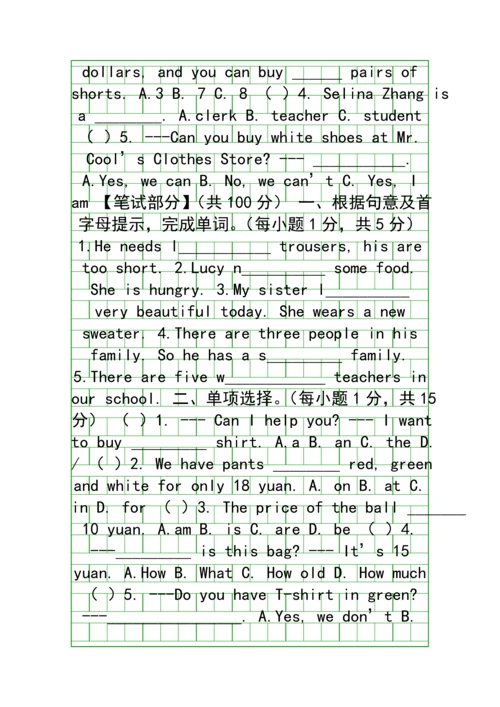 dollars, and you can buy ______ pairs of
shorts. A.3 B. 7 C. 8 （ ）4. Selina Zhang is
a ________. A.clerk B. teacher C. student
（ ）5. ---Can you buy white shoes at Mr.
Cool’s Clothes Store? --- ___________.
A.Yes, we can B. No, we can’t C. Yes, I
am 【笔试部分】（共100分） 一、根据句意及首
字母提示，完成单词。（每小题1分，共5分）
1.He needs l___________ trousers, his are
too short. 2.Lucy n__________ some food.
She is hungry. 3.My sister l__________
very beautiful today. She wears a new
sweater. 4.There are three people in his
family. So he has a s_________ family.
5.There are five w____________ teachers in
our school. 二、单项选择。（每小题1分，共15
分） （ ）1. --- Can I help you? --- I want
to buy _________ shirt. A.a B. an C. the D.
/ （ ）2. We have pants ________ red, green
and white for only 18 yuan. A. on B. at C.
in D. for （ ）3. The price of the ball _______
10 yuan. A.am B. is C. are D. be （ ）4.
---_________ is this bag? --- It’s 15
yuan. A.How B. What C. How old D. How much
（ ）5. ---Do you have T-shirt in green?
---________________. A.Yes, we don’t B.